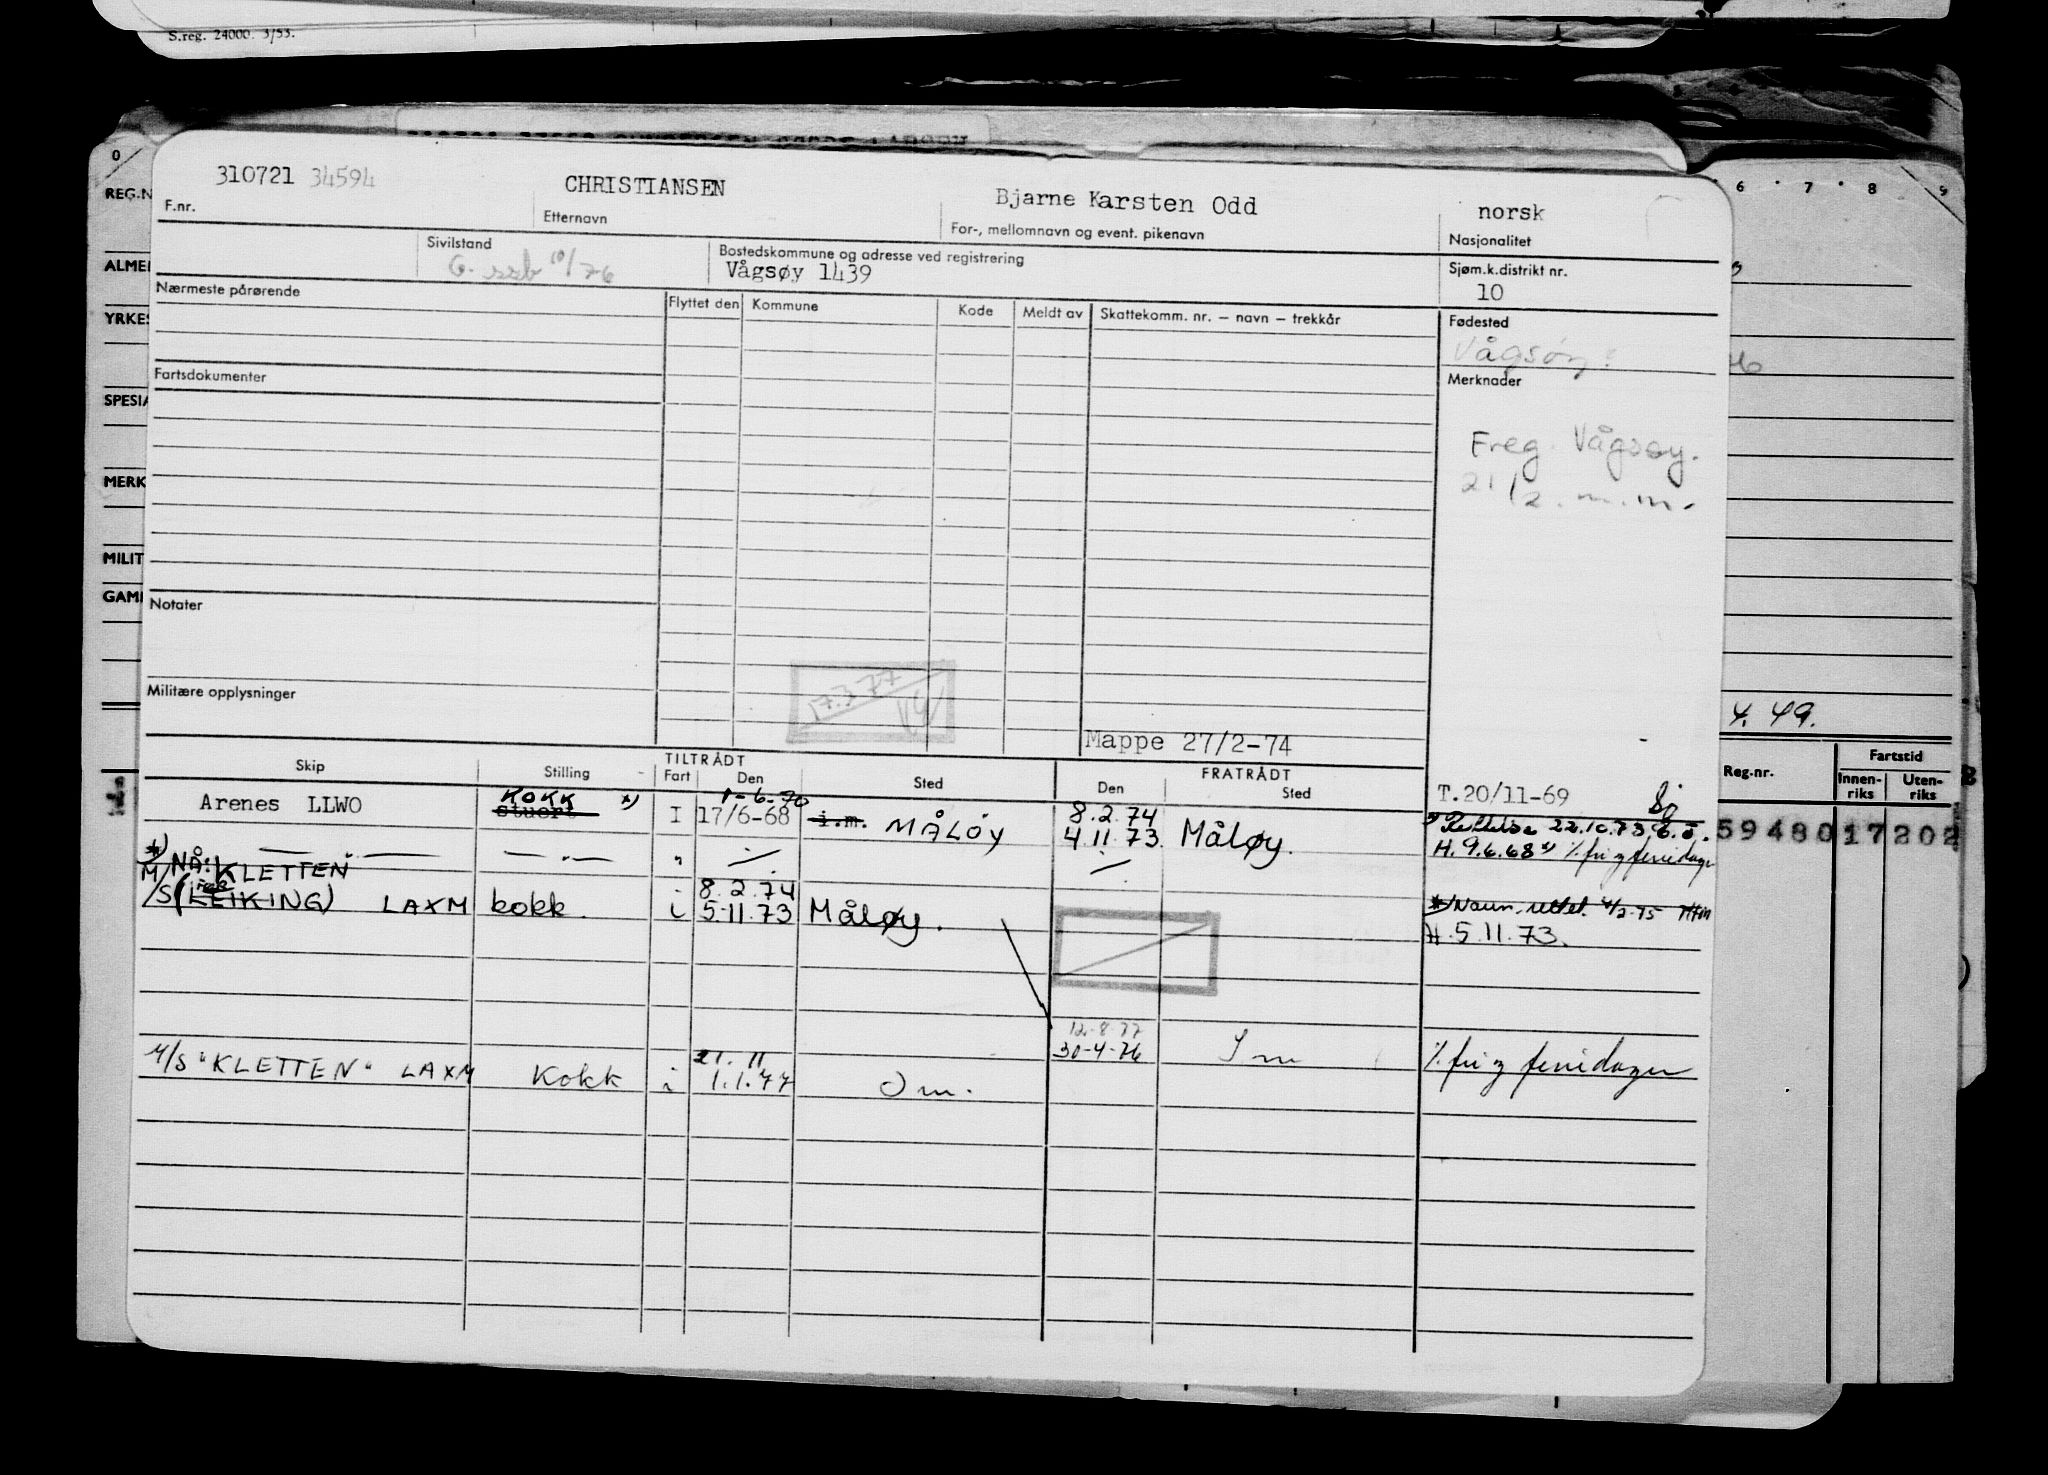 S.reg. 24000. 3/53.
0
6 7 8 9
REG.N
ALMEI
YRKES
SPESIA
MERK
MILIT
GAM
310721 34594 CHRISTIANSEN Bjarne Karsten Odd norsk
F.nr. Etternavn For-, mellomnavn og event. pikenavn Nasjonalitet
Sivilstand Bostedskommune og adresse ved registrering Sjøm.k.distrikt nr.
G. ssb 10/76 Vågsøy 1439 10
Nærmeste pårørende Flyttet den Kommune Kode Meldt av Skattekomm. nr. – navn – trekkår Fødested
Vågsøy
Fartsdokumenter Merknader
Freg. Vågsøy.
21/2. m.m.
Notater
Militære opplysninger
17.3.77
4. 49.
Mappe 27/2-74
Skip Stilling TILTRÅDT Fart Den Sted FRATRÅDT Den Sted
Reg.nr. Fartstid
Innen-riks Uten-riks
T.20/11-69
KOKK *) 1-6-70 8.2.74
Arenes LLWO stuert I 17/6-68 i.m. MÅLØY 4.11.73. Måløy.
22.10.73
H. 9.6.68 % fri og feriedager
59480 17202
*) NÅ: KLETTEN
M/S (LEIKING) LAXM kokk. i 8.2.74 5.11.73 Måløy.
*) Navn rettet 4/2-75
H. 5.11.73.
12.8.77
30-4-76 Im
M/S "KLETTEN" LAXM Kokk i 21.11 1.1.77 Om. % fri og feriedager